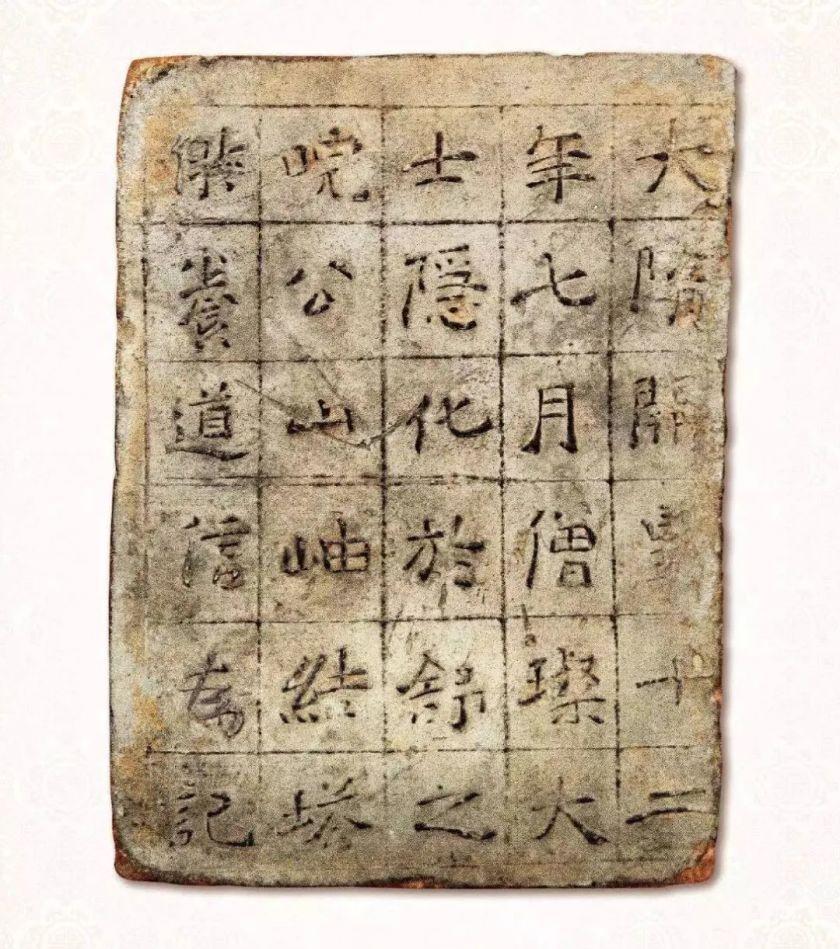 大隋開皇十二
年七月僧璨大
士隱化於舒之
皖公山岫結塔
供養道信為記